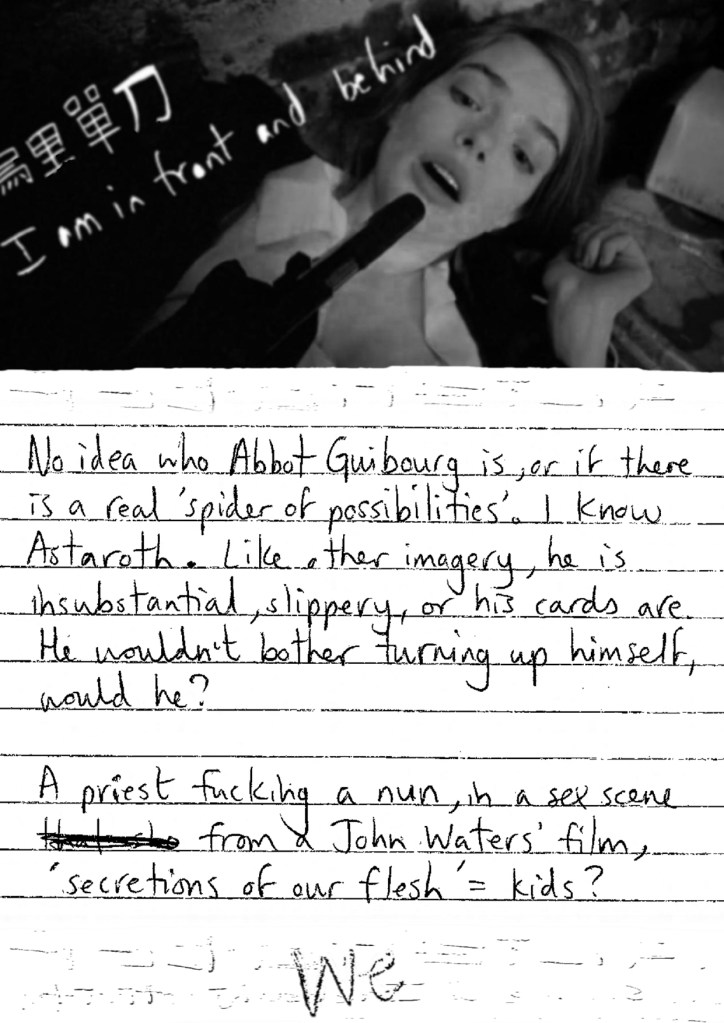 烏里單刀
I am in front and behind
No idea who Abbot Guibourg is, or if there
is a real 'spider of possibilities'. I know
Astaroth. Like other imagery, he is
insubstantial, slippery, or his cards are.
He wouldn't bother turning up himself,
would he?
A priest fucking a nun, in a sex scene
from a John Waters' film,
'secretions of our flesh' = kids?
We